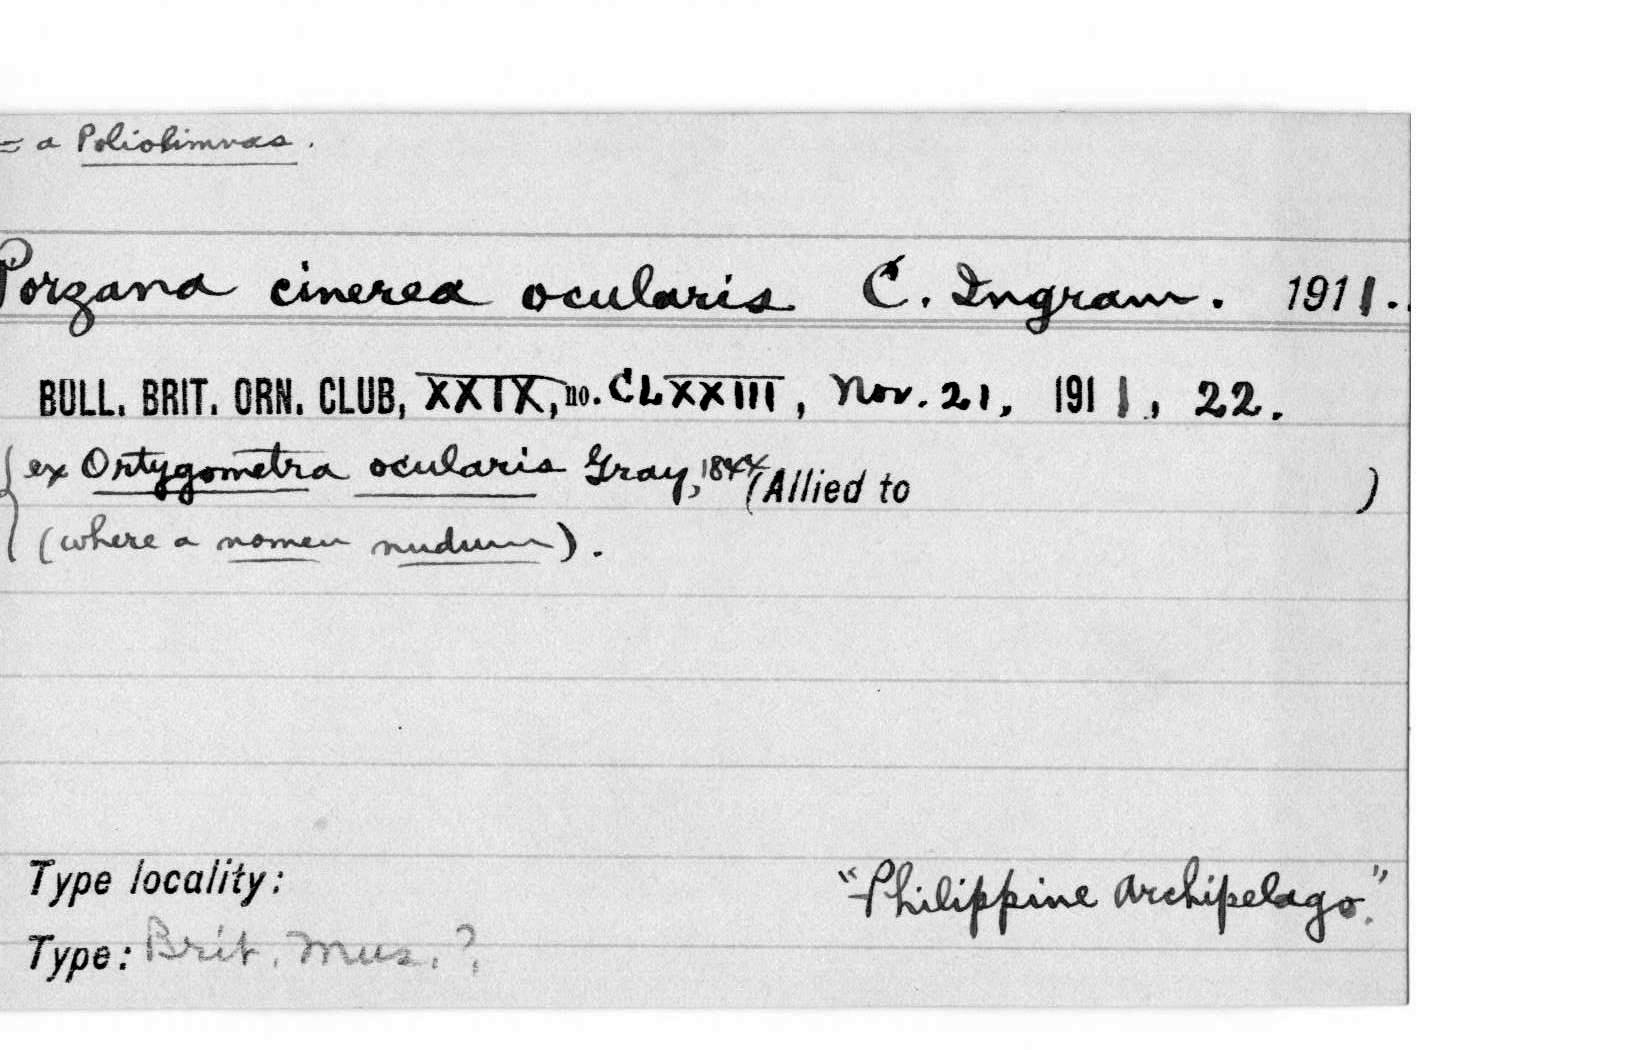 = a Poliolimnas.
Porzana cinerea ocularis C. Ingram. 1911.
BULL. BRIT. ORN. CLUB, XXIX, no. CLXXIII, Nov. 21, 1911, 22.
ex Ortygometra ocularis Gray, 1844 (Allied to )
(where a nomen nudum).
Type locality: "Philippine Archipelago."
Type: Brit. Mus. ?